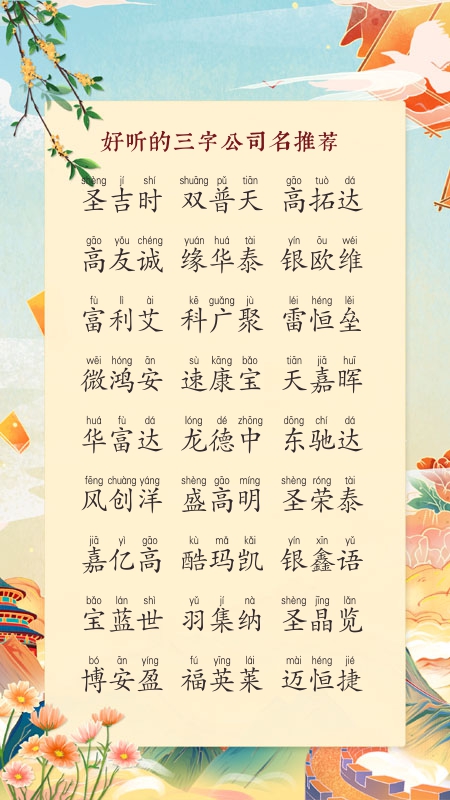 好听的三字公司名推荐
shèng jí shí shuāng pǔ tiān gāo tuò dá
圣吉时 双普天 高拓达
gāo yǒu chéng yuán huá tài yín ōu wéi
高友诚 缘华泰 银欧维
fù lì ài kē guǎng jù léi héng lěi
富利艾 科广聚 雷恒垒
wēi hóng ān sù kāng bǎo tiān jiā huī
微鸿安 速康宝 天嘉晖
huá fù dá lóng dé zhōng dōng chí dá
华富达 龙德中 东驰达
fēng chuàng yáng shèng gāo míng shèng róng tài
风创洋 盛高明 圣荣泰
jiā yì gāo kù mǎ kǎi yín xīn yǔ
嘉亿高 酷玛凯 银鑫语
bǎo lán shì yǔ jí nà shèng jīng lǎn
宝蓝世 羽集纳 圣晶览
bó ān yíng fú yīng lái mài héng jié
博安盈 福英莱 迈恒捷